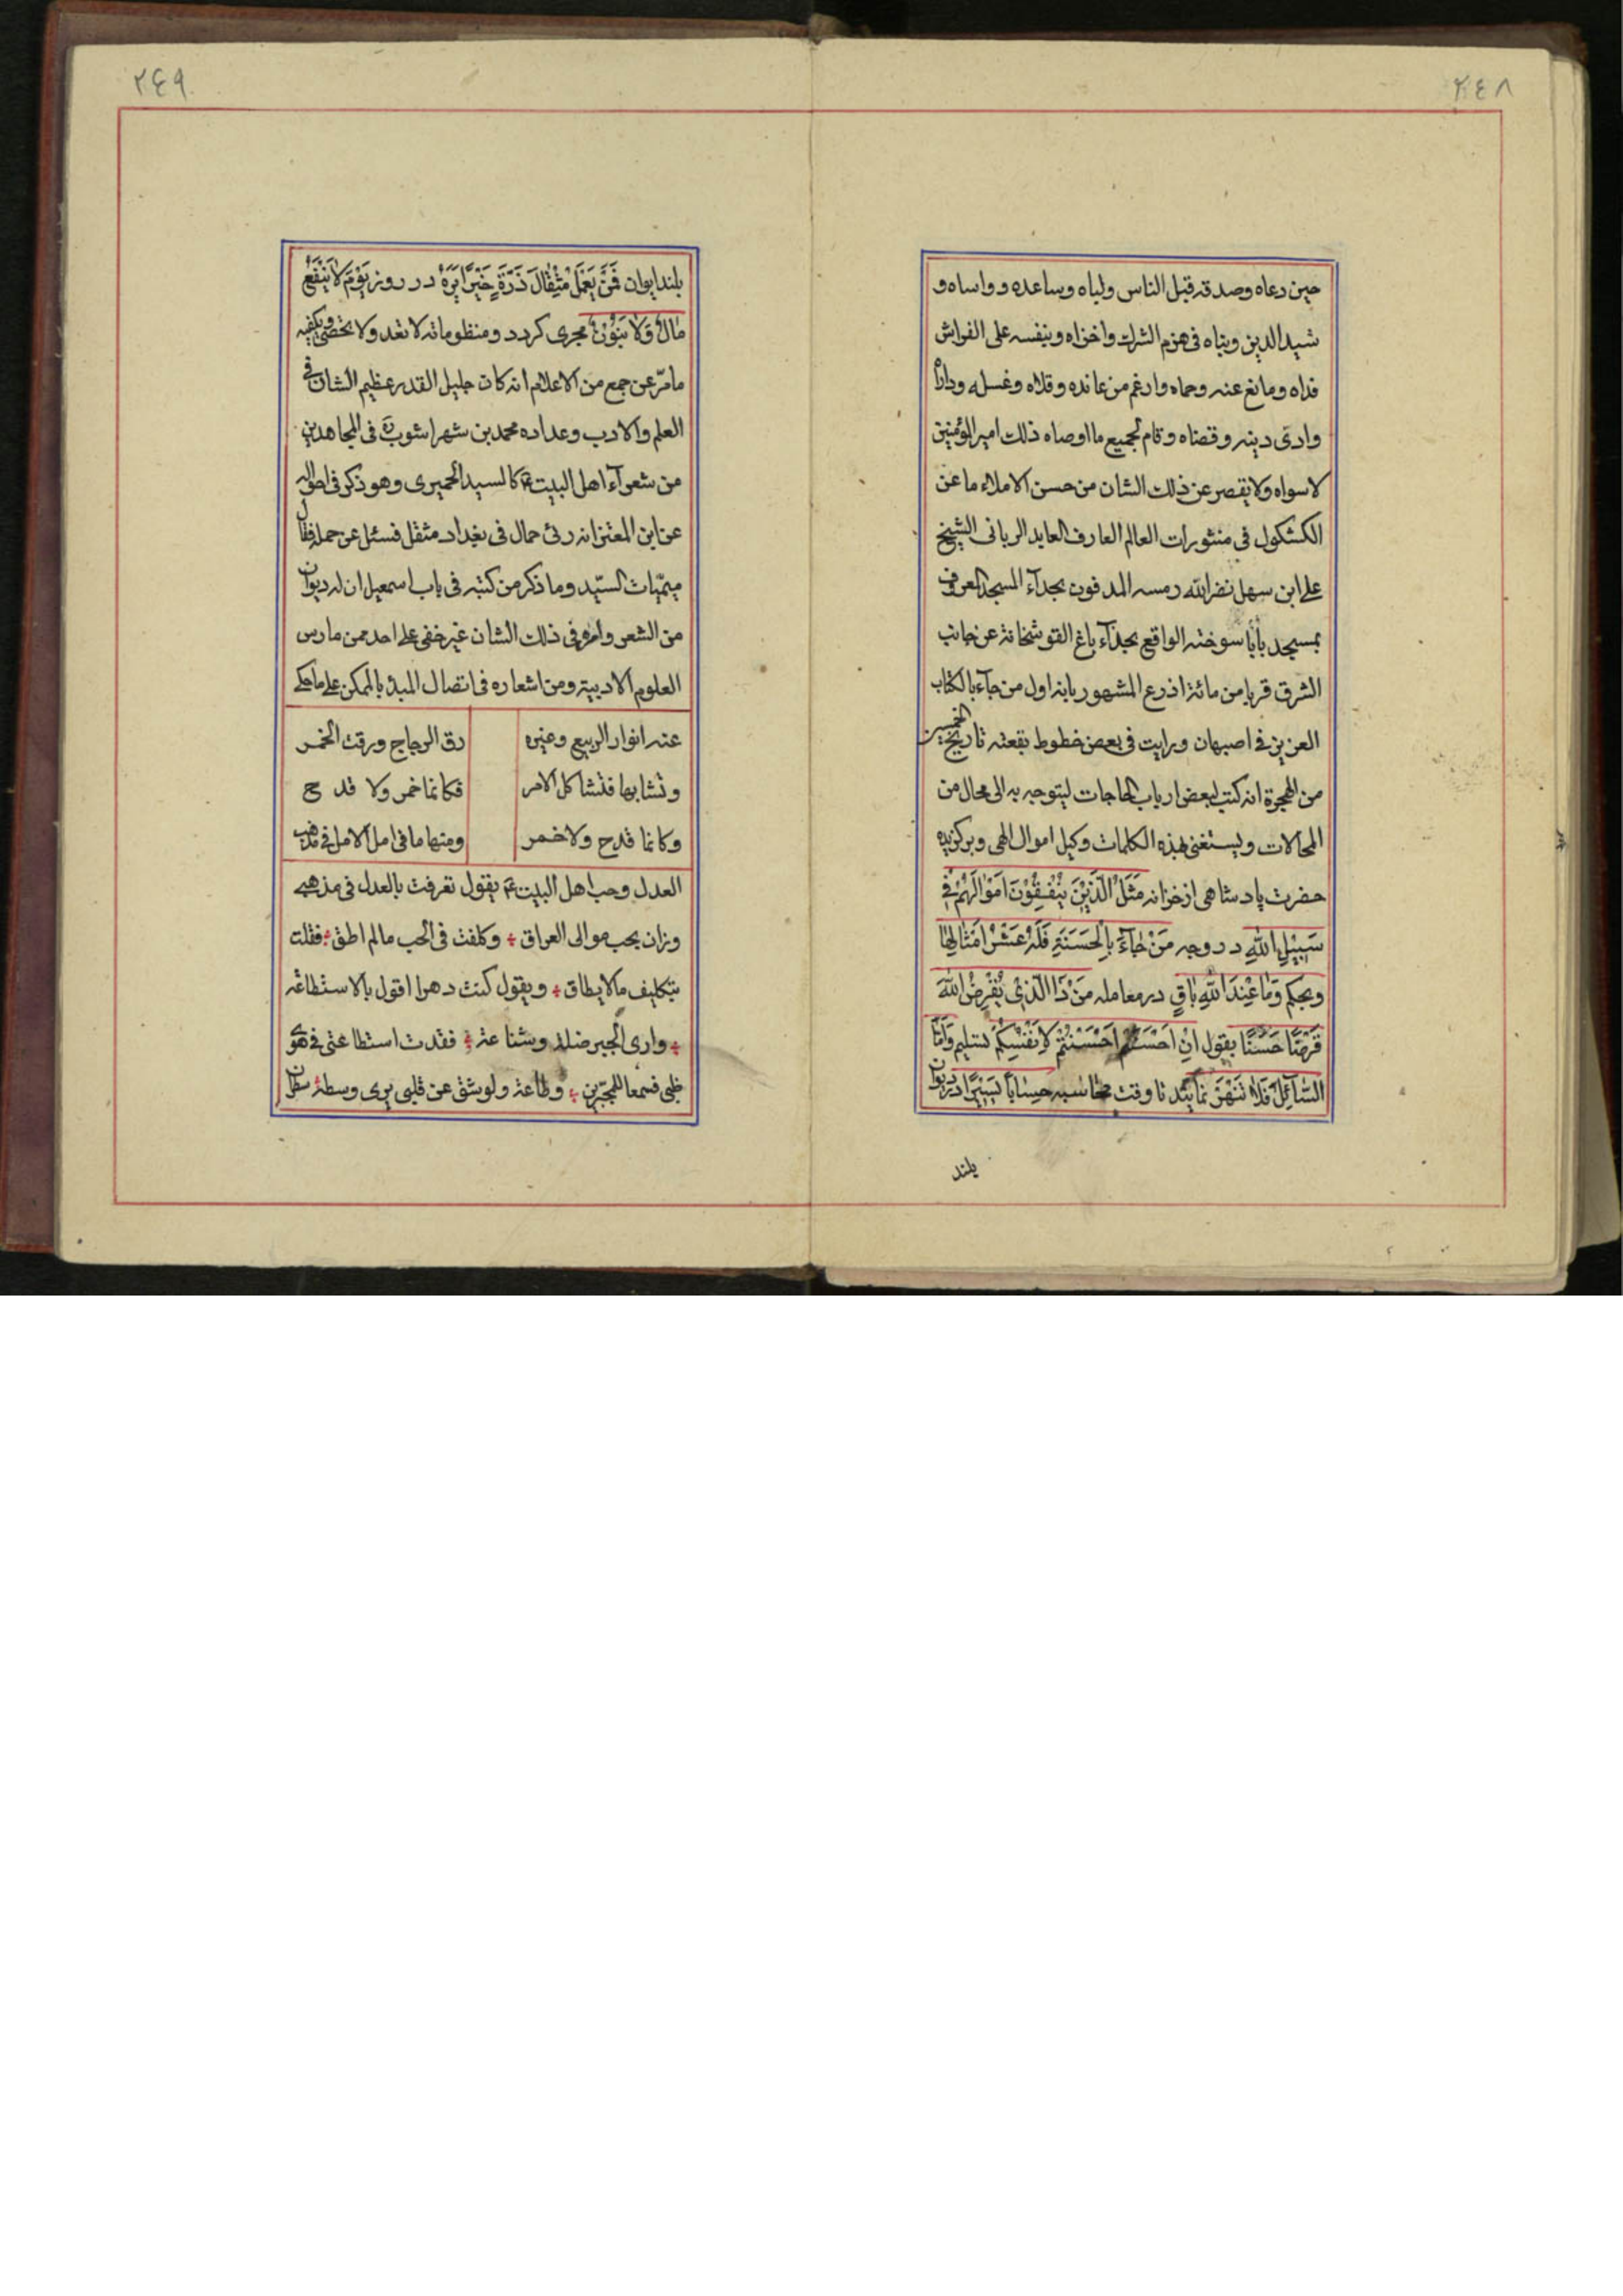 ٢٤٨
حين دعاه وصدقه قبل الناس ولباه وساعده وواساه و
شيد الدين وبناه فى هزم الشرك واخزاه وبنفسه على الفراش
فداه ومانع عنه وحماه وارغم من عانده وقلاه وغسله وداراه
وادى دينه وقضاه وقام لجميع ما اوصاه ذلك اميرالمؤمنين
لاسواه ولايقصر عن ذلك الشان من حسن الاملاء ما عن
الكشكول فى منثورات العالم العارف العابد الربانى الشيخ
على ابن سهل نضرالله رمسه المدفون بجدآء المسجد المعروف
بمسجد بابا سوخته الواقع بحذآء باغ القوشخانة عن جانب
الشرق قريبا من مائة اذرع المشهور بانه اول من جآء بالكتاب
العزيز فى اصبهان ورايت فى بعض خطوط بقعته تاريخ الخمسين
من الهجرة انه كتب لبعض ارباب الحاجات ليتوجه به الى محال من
المحالات ويستغنى بهذه الكلمات وكيل اموال الهى وبركزيده
حضرت پادشاهى ازخزانه مَثَلُ الَّذِيْنَ يُنْفِقُوْنَ اَمْوٰالَهُمْ فِى
سَبِيْلِ اللّٰهِ در وجه مَنْ جٰآءَ بِالْحَسَنَةِ فَلَهُ عَشْرُ اَمْثٰالِهٰا
وبحكم وَمٰا عِنْدَاللّٰهِ بٰاقٍ در معامله مَنْ ذَا الَّذِىْ يُقْرِضُ اللّٰهَ
قَرْضًا حَسَنًا بقول اِنْ اَحْسَنْتُمْ اَحْسَنْتُمْ لِاَنْفُسِكُمْ تسليم وَاَمَّا
السّٰآئِلَ فَلاٰ تَنْهَرْ نمايند تا وقت محاسبه حِسٰابًا يَسِيْرًا در ديوان
بلند
٢٤٩
بلند ايوان فَمَنْ يَعْمَلْ مِثْقٰالَ ذَرَّةٍ خَيْرًا يَرَهُ در روز يَوْمَ لاٰ يَنْفَعُ
مٰالٌ وَلاٰ بَنُوْنَ مجرى كردد ومنظوماته لا تعد ولا تحصى ويكفيه
مامرّ عن جمع من الاعلام انه كان جليل القدر عظيم الشان فى
العلم والادب وعداده محمد بن شهراشوب ره فى المجاهدين
من شعرآء اهل البيت ع كالسيد الحميرى وهو ذكر فى احواله
عن ابن المعتز انه رئى حمال فى بغداد مثقل فسئل عن حمله فقال
ميميّات السّيد وما ذكر من كتبه فى باب اسمعيل ان له ديوان
من الشعر وامره فى ذلك الشان غير خفى على احد ممن مارس
العلوم الادبية ومن اشعاره فى اتصال المبدء بالممكن على ما حكى
عنه انوار الربيع وغيره رق الزجاج ورقت الخمر
وتشابها فتشاكل الامر فكانما خمر ولا قدح
وكانما قدح ولاخمر ومنها مافى امل الامل فى مذهب
العدل وحب اهل البيت ع يقول تعرفت بالعدل فى مذهبى
وزان بحب موالى العراق وكلفت فى الحب مالم اطق فقلت
بتكليف مالايطاق ويقول كنت دهرا اقول بالاستطاعة
وارى الجبر ضلة وشناعة ففقدت استطاعتى فى هوى
ظبى فسمعا للمجبّرين وطاعة ولوشق عن قلبى يرى وسطه سطران